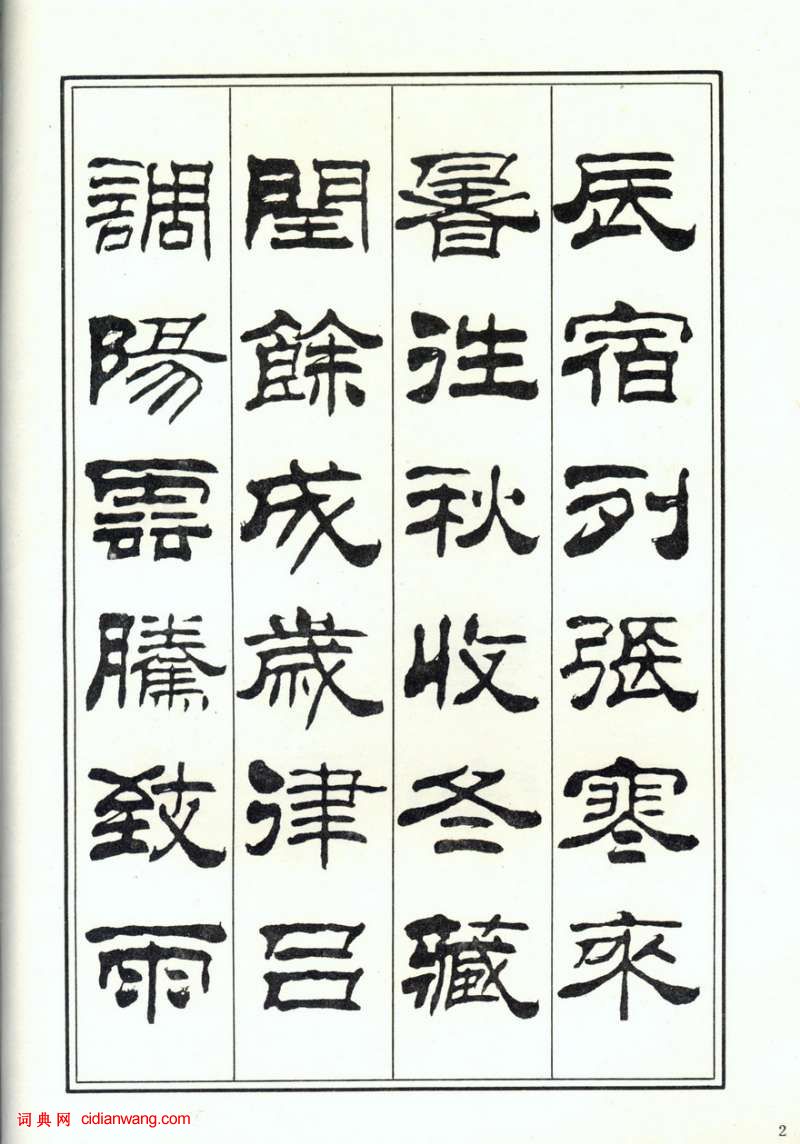 辰宿列張寒來
暑往秋收冬藏
閏餘成歲律呂
調陽雲騰致雨
词典网 cidianwang.com
2